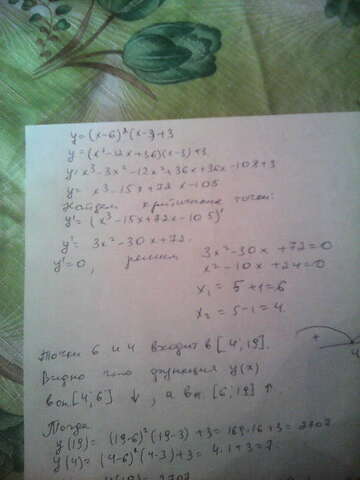 y=(x-6)²(x-3)+3
y=(x²-12x+36)(x-3)+3
y=x³-3x²-12x²+36x+36x-108+3
y= x³-15x+72x-105
Найдем критические точки:
y'=(x³-15x+72x-105)'
y'= 3x²-30x+72.
y'=0, решим 3x²-30x+72=0
x²-10x+24=0
x₁=5+1=6
x₂=5-1=4.
Точки 6 и 4 входит в [4;19].
Видно что функция y(x)
[4;6] ↓, а [6;19] ↑.
Тогда
y(19)= (19-6)²(19-3)+3=169·16+3=2707
y(4)= (4-6)²(4-3)+3=4·1+3=7.